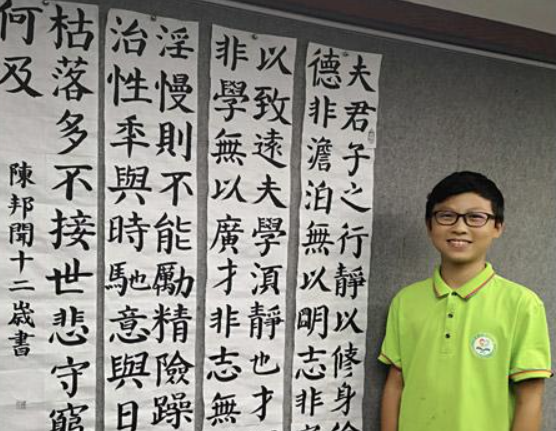 夫君子之行靜以修身
德非澹泊無以明志非
以致遠夫學湏靜也才
非學無以廣才非志無
淫慢則不能勵精險躁
治性秊與時馳意與日
枯落多不接世悲守窮
何及
陳邦聞十二歲書